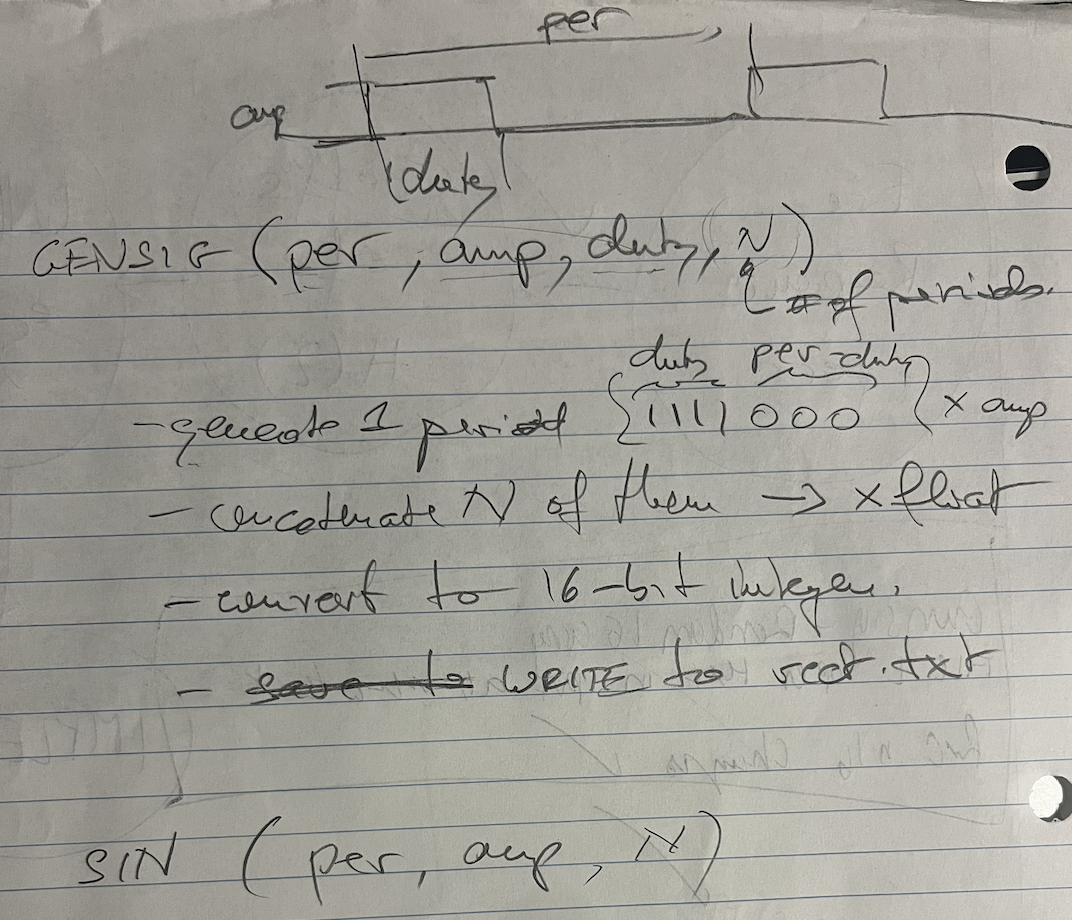 per
amp
duty
GENSIG (per, amp, duty, N)
# of periods.
duty per-duty
- generate 1 period { 1111 000 } x amp
- concatenate N of them → xfloat
- convert to 16-bit integer.
- save to WRITE to rect.txt
SIN (per, amp, N)